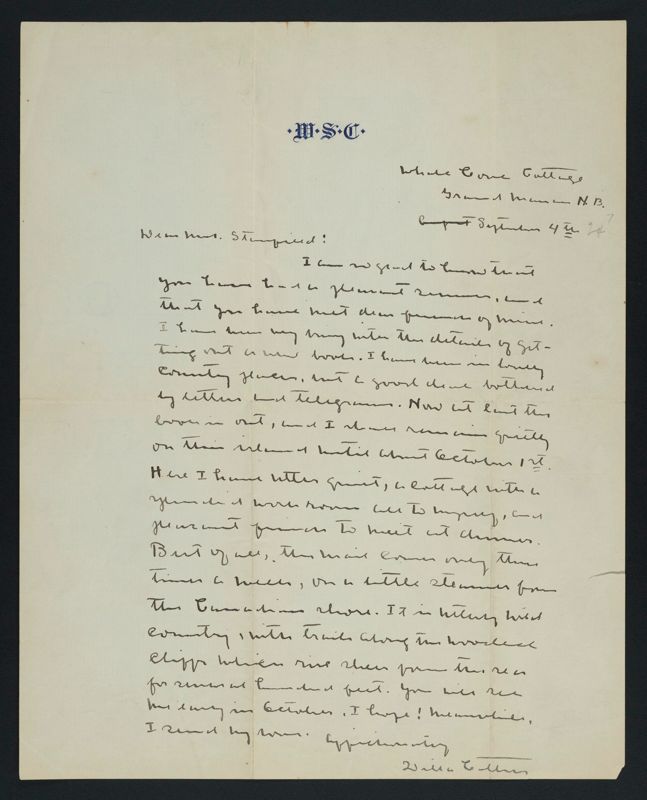 ·W·S·C·
Whale Cove Cottage
Grand Manan N.B.
August September 4th
Dear Mrs. Stanfield!
I am so glad to know that
you have had a pleasant summer, and
that you have met dear friends of mine.
I have been very busy with the details of get-
ting out a new book. I have been in lovely
country places, but a good deal bothered
by letters and telegrams. Now at last the
book is out, and I shall remain quietly
on this island until about October 1st.
Here I have utter quiet, a cottage with a
splendid work room all to myself, and
pleasant friends to meet at dinner.
Best of all, the mail comes only three
times a week, on a little steamer from
the Canadian shore. It is utterly wild
country, with trails along the wooded
cliffs which rise sheer from the sea
for several hundred feet. You will see
me early in October, I hope! Meanwhile,
I send my love. Affectionately
Willa Cather